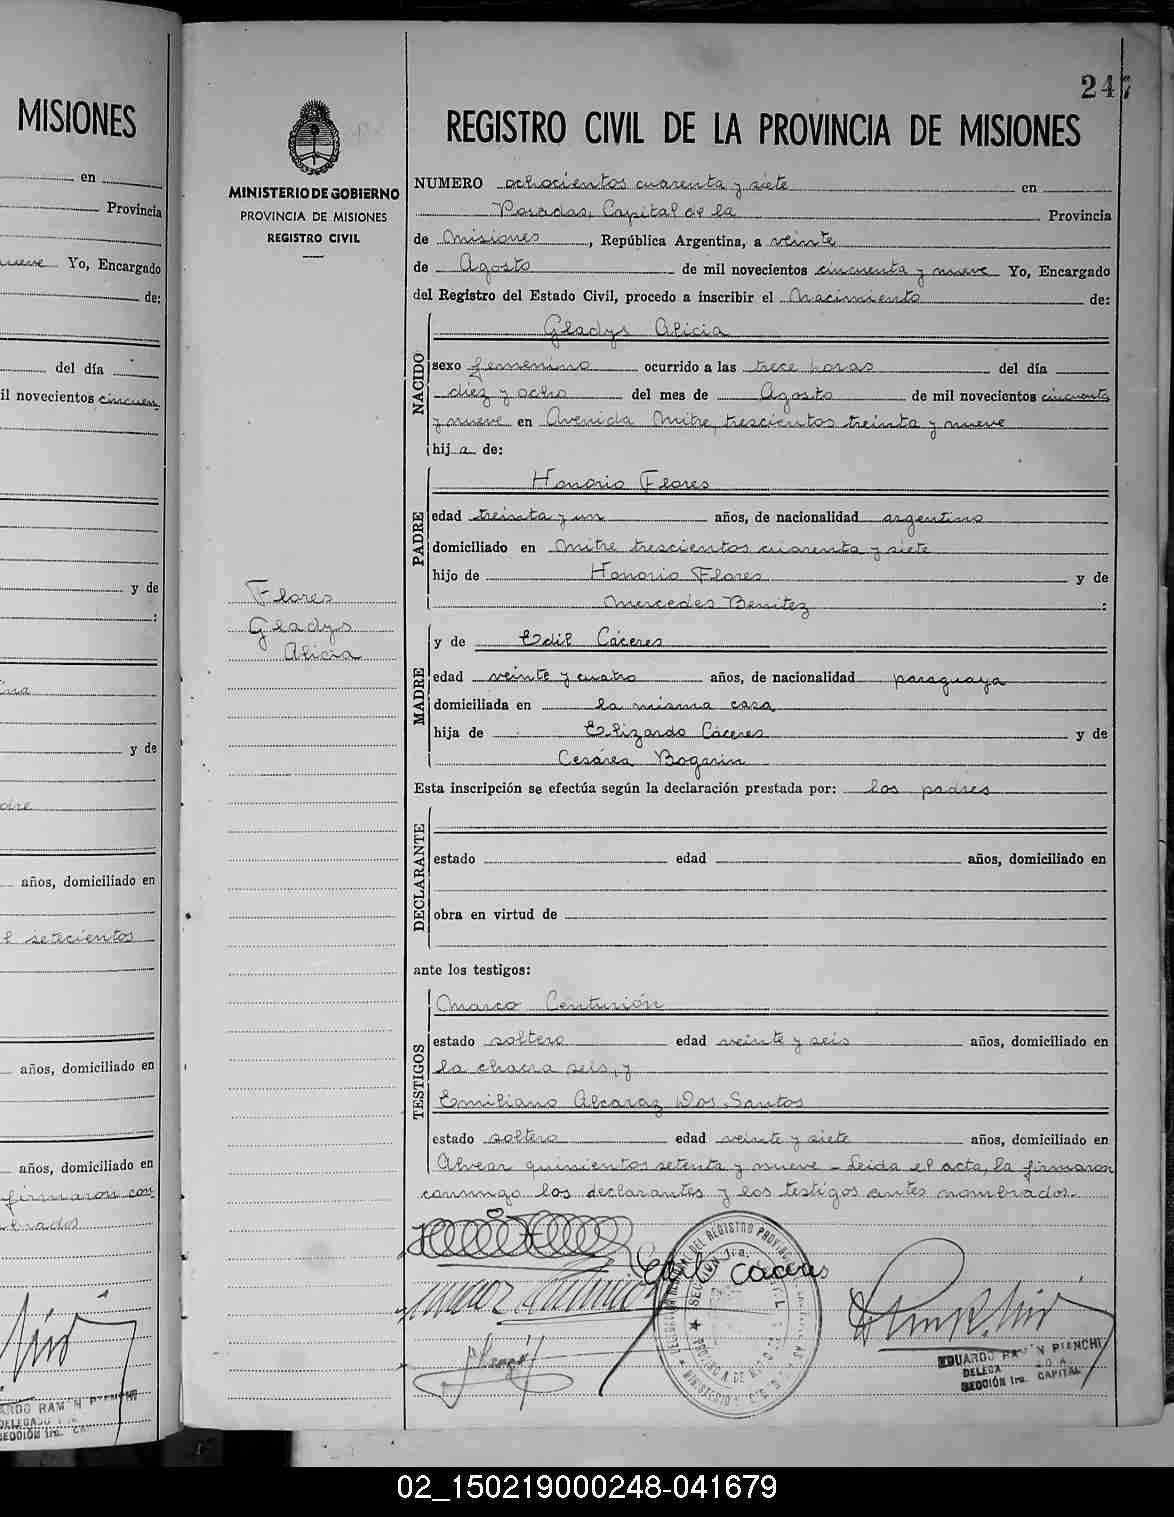 MISIONES
en
Provincia
Yo, Encargado
de:
del día
il novecientos cincuen
y de
:
y de
dre
años, domiciliado en
setecientos
años, domiciliado en
años, domiciliado en
firmaron con
brados
247
MINISTERIO DE GOBIERNO
PROVINCIA DE MISIONES
REGISTRO CIVIL
Flores
Gladys
Alicia
REGISTRO CIVIL DE LA PROVINCIA DE MISIONES
NUMERO ochocientos cuarenta y siete en
Posadas, Capital de la Provincia
de Misiones, República Argentina, a veinte
de Agosto de mil novecientos cincuenta y nueve Yo, Encargado
del Registro del Estado Civil, procedo a inscribir el Nacimiento de:
NACIDO
Gladys Alicia
sexo femenino ocurrido a las trece horas del día
diez y ocho del mes de Agosto de mil novecientos cincuenta
y nueve en Avenida Mitre, trescientos treinta y nueve
hij a de:
PADRE
Honorio Flores
edad treinta y un años, de nacionalidad argentino
domiciliado en Mitre trescientos cuarenta y siete
hijo de Honorio Flores y de
Mercedes Benitez :
MADRE
y de Edil Cáceres
edad veinte y cuatro años, de nacionalidad paraguaya
domiciliada en la misma casa
hija de Elizardo Cáceres y de
Cesárea Bogarin
Esta inscripción se efectúa según la declaración prestada por: los padres
DECLARANTE
estado edad años, domiciliado en
obra en virtud de
ante los testigos:
TESTIGOS
Marco Centurión
estado soltero edad veinte y seis años, domiciliado en
la chacra seis, y
Emiliano Alcaraz Dos Santos
estado soltero edad veinte y siete años, domiciliado en
Alvear quinientos setenta y nueve - Leida el acta, la firmaron
conmigo los declarantes y los testigos antes nombrados.-
Edil Caceres
SECCION 1ra.
EDUARDO RAMON BIANCHI
SECCIÓN 1ra. CAPITAL
02_150219000248-041679